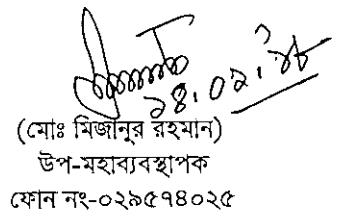 (মোঃ মিজানুর রহমান)
উপ-মহাব্যবস্থাপক
ফোন নং-০২৯৫৭৪০২৫